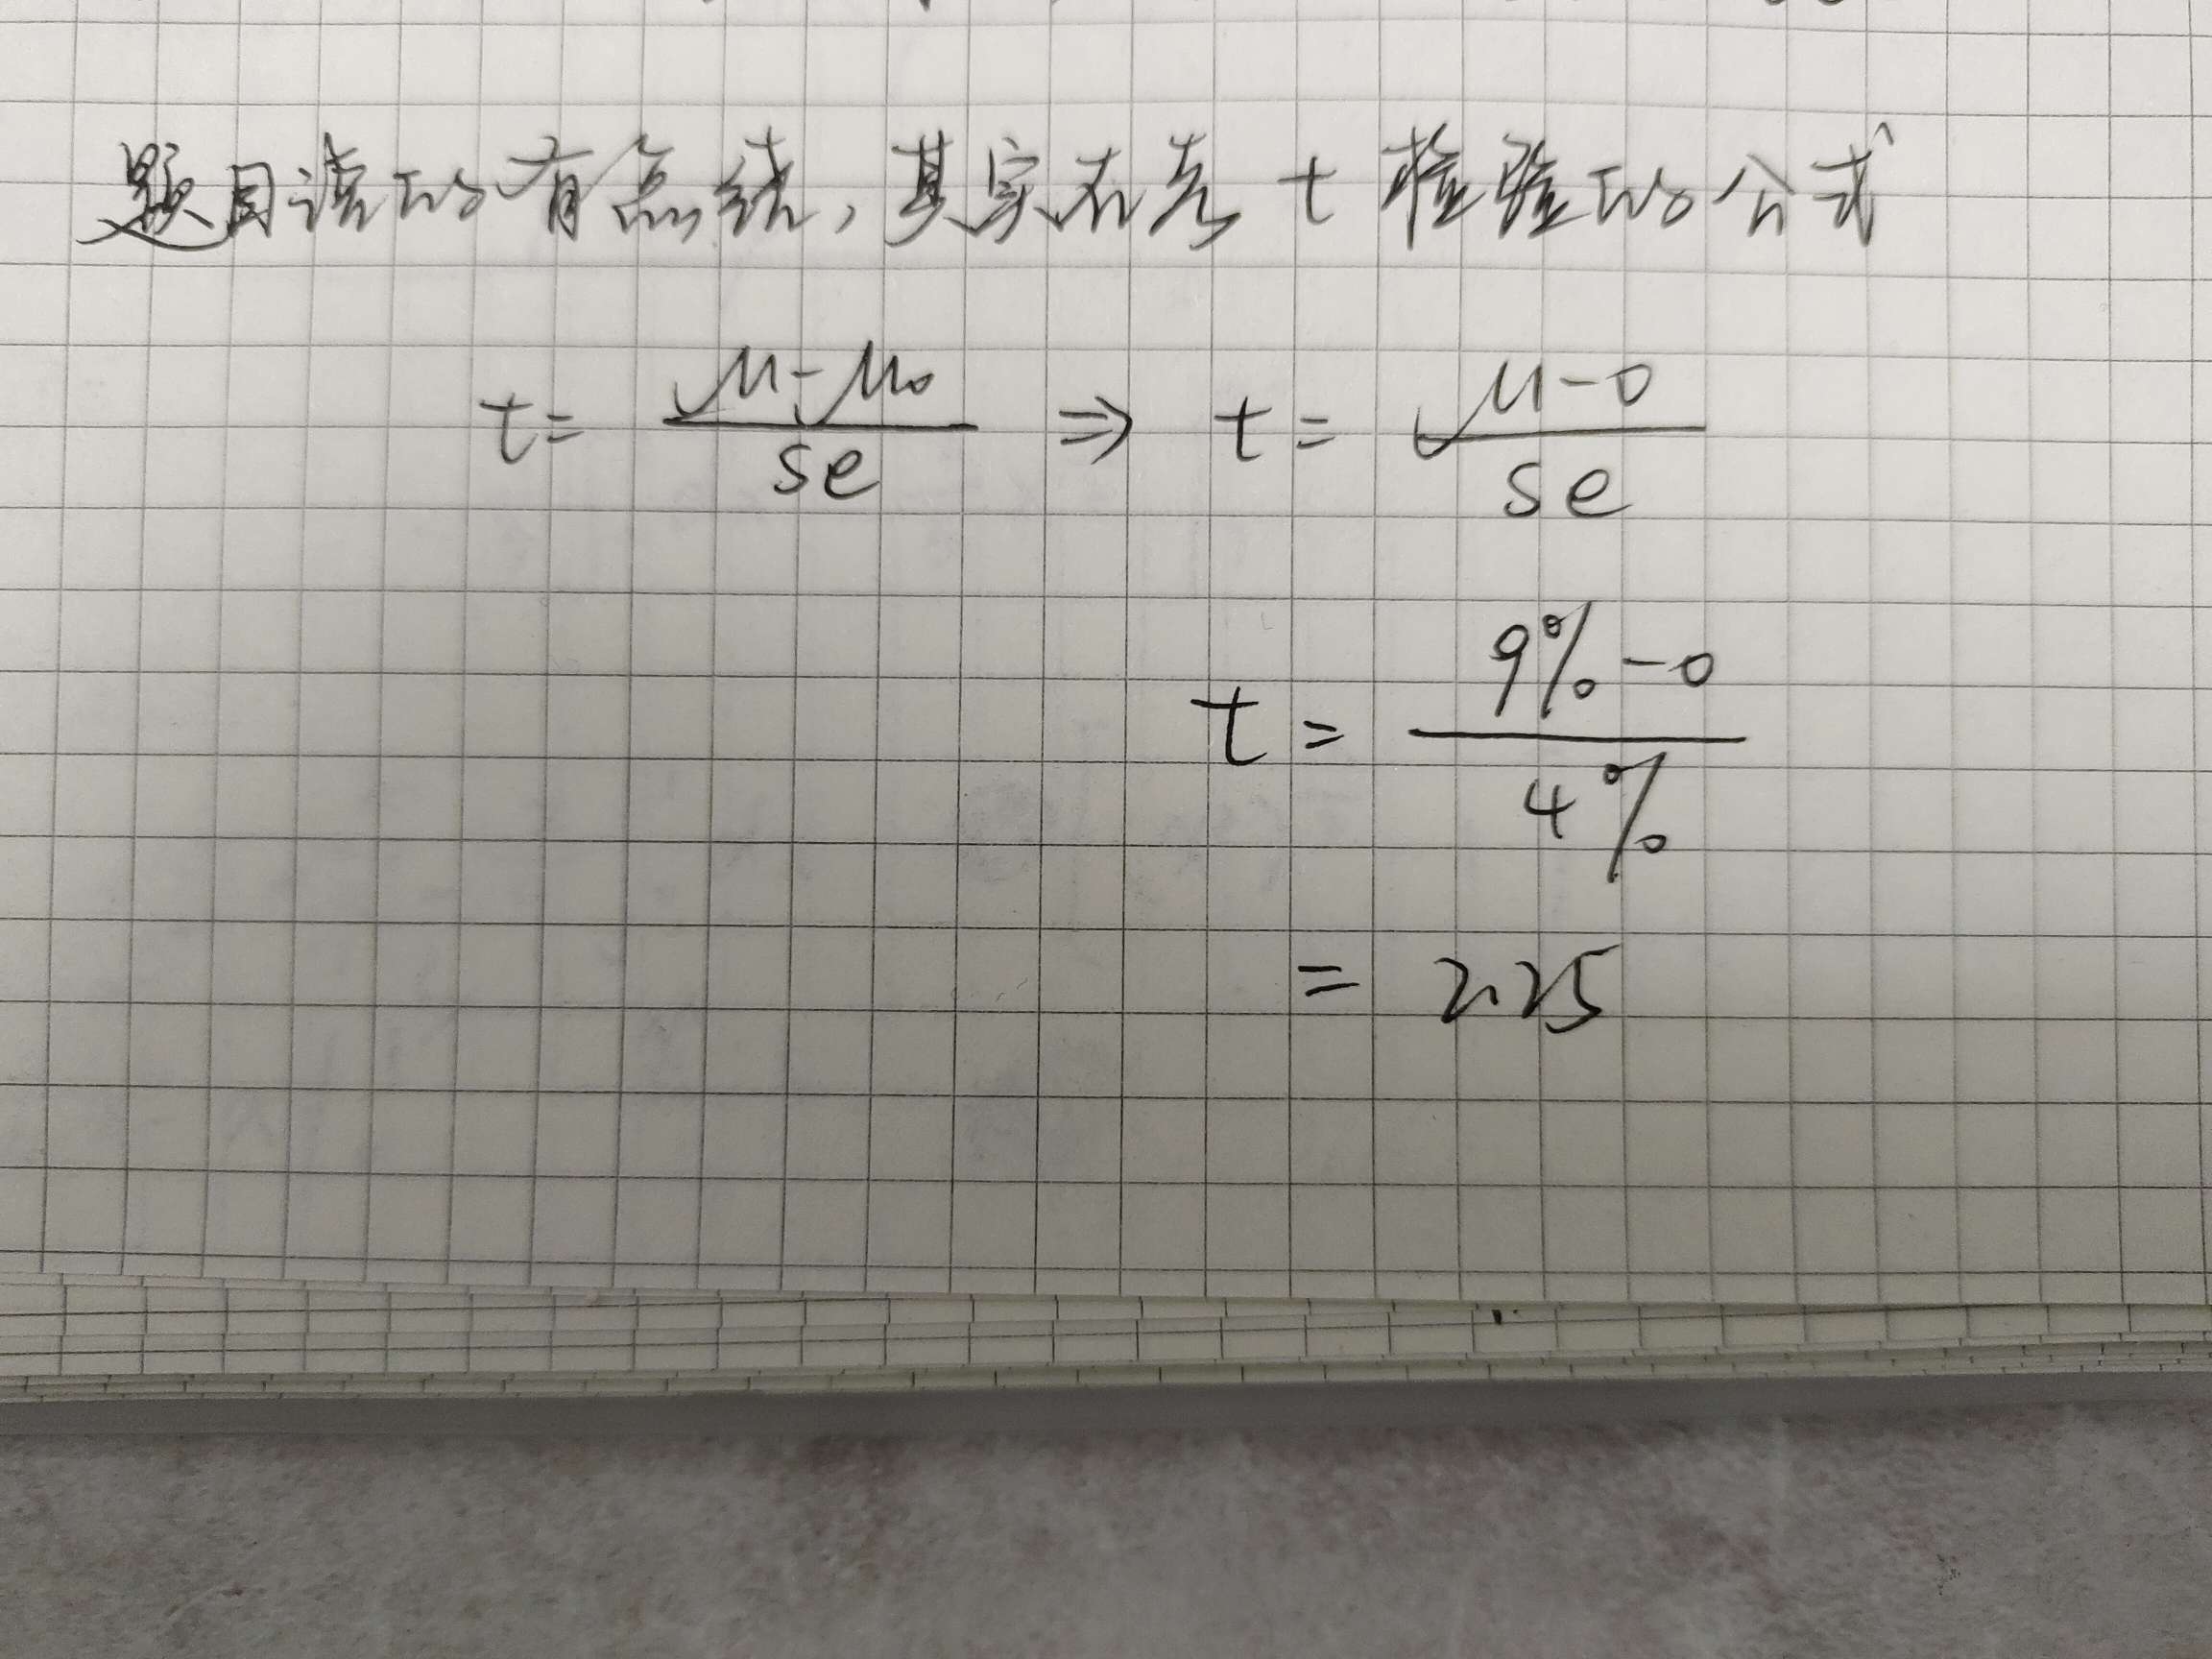 题目读的有点绕，其实在考 t 检验的公式
t = (μ - μ₀) / se ⇒ t = (μ - 0) / se
t = (9% - 0) / 4%
= 2.25